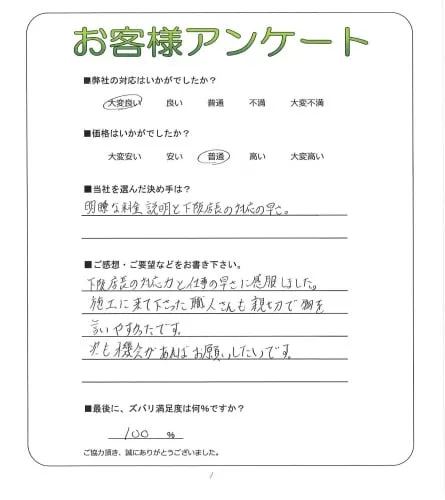 お客様アンケート
■弊社の対応はいかがでしたか？
大変良い 良い 普通 不満 大変不満
■価格はいかがでしたか？
大変安い 安い 普通 高い 大変高い
■当社を選んだ決め手は？
明瞭な料金説明と下阪店長の対応の早さ。
■ご感想・ご要望などをお書き下さい。
下阪店長の対応力と仕事の早さに感服しました。
施工に来て下さった職人さんも親切で物を
言いやすかったです。
次も機会があればお願いしたいです。
■最後に、ズバリ満足度は何％ですか？
100 %
ご協力頂き、誠にありがとうございました。